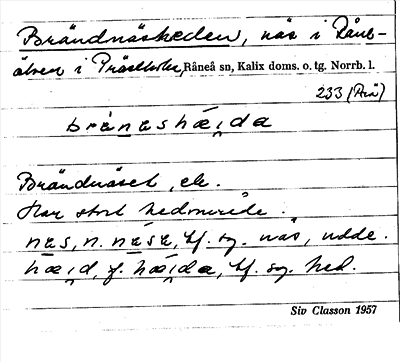 Brändnäsheden, näs i Råne-
älven i Prästholm, Råneå sn, Kalix doms. o. tg. Norrb. l.
233 (Anå)
brånæshǽi̯da
Brändnäset, ek.
Har stort hedområde.
næs, n. næsə, bf. sg. näs, udde.
hæi̯d, f. hǽi̯da, bf. sg. hed.
Siv Classon 1957